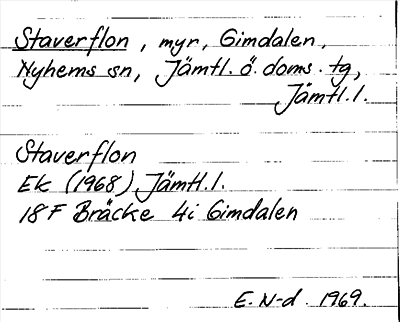 Staverflon, myr, Gimdalen,
Nyhems sn, Jämtl. ö. doms. tg,
Jämtl. l.
Staverflon
Ek (1968) Jämtl. l.
18F Bräcke 4i Gimdalen
E. N-d. 1969.